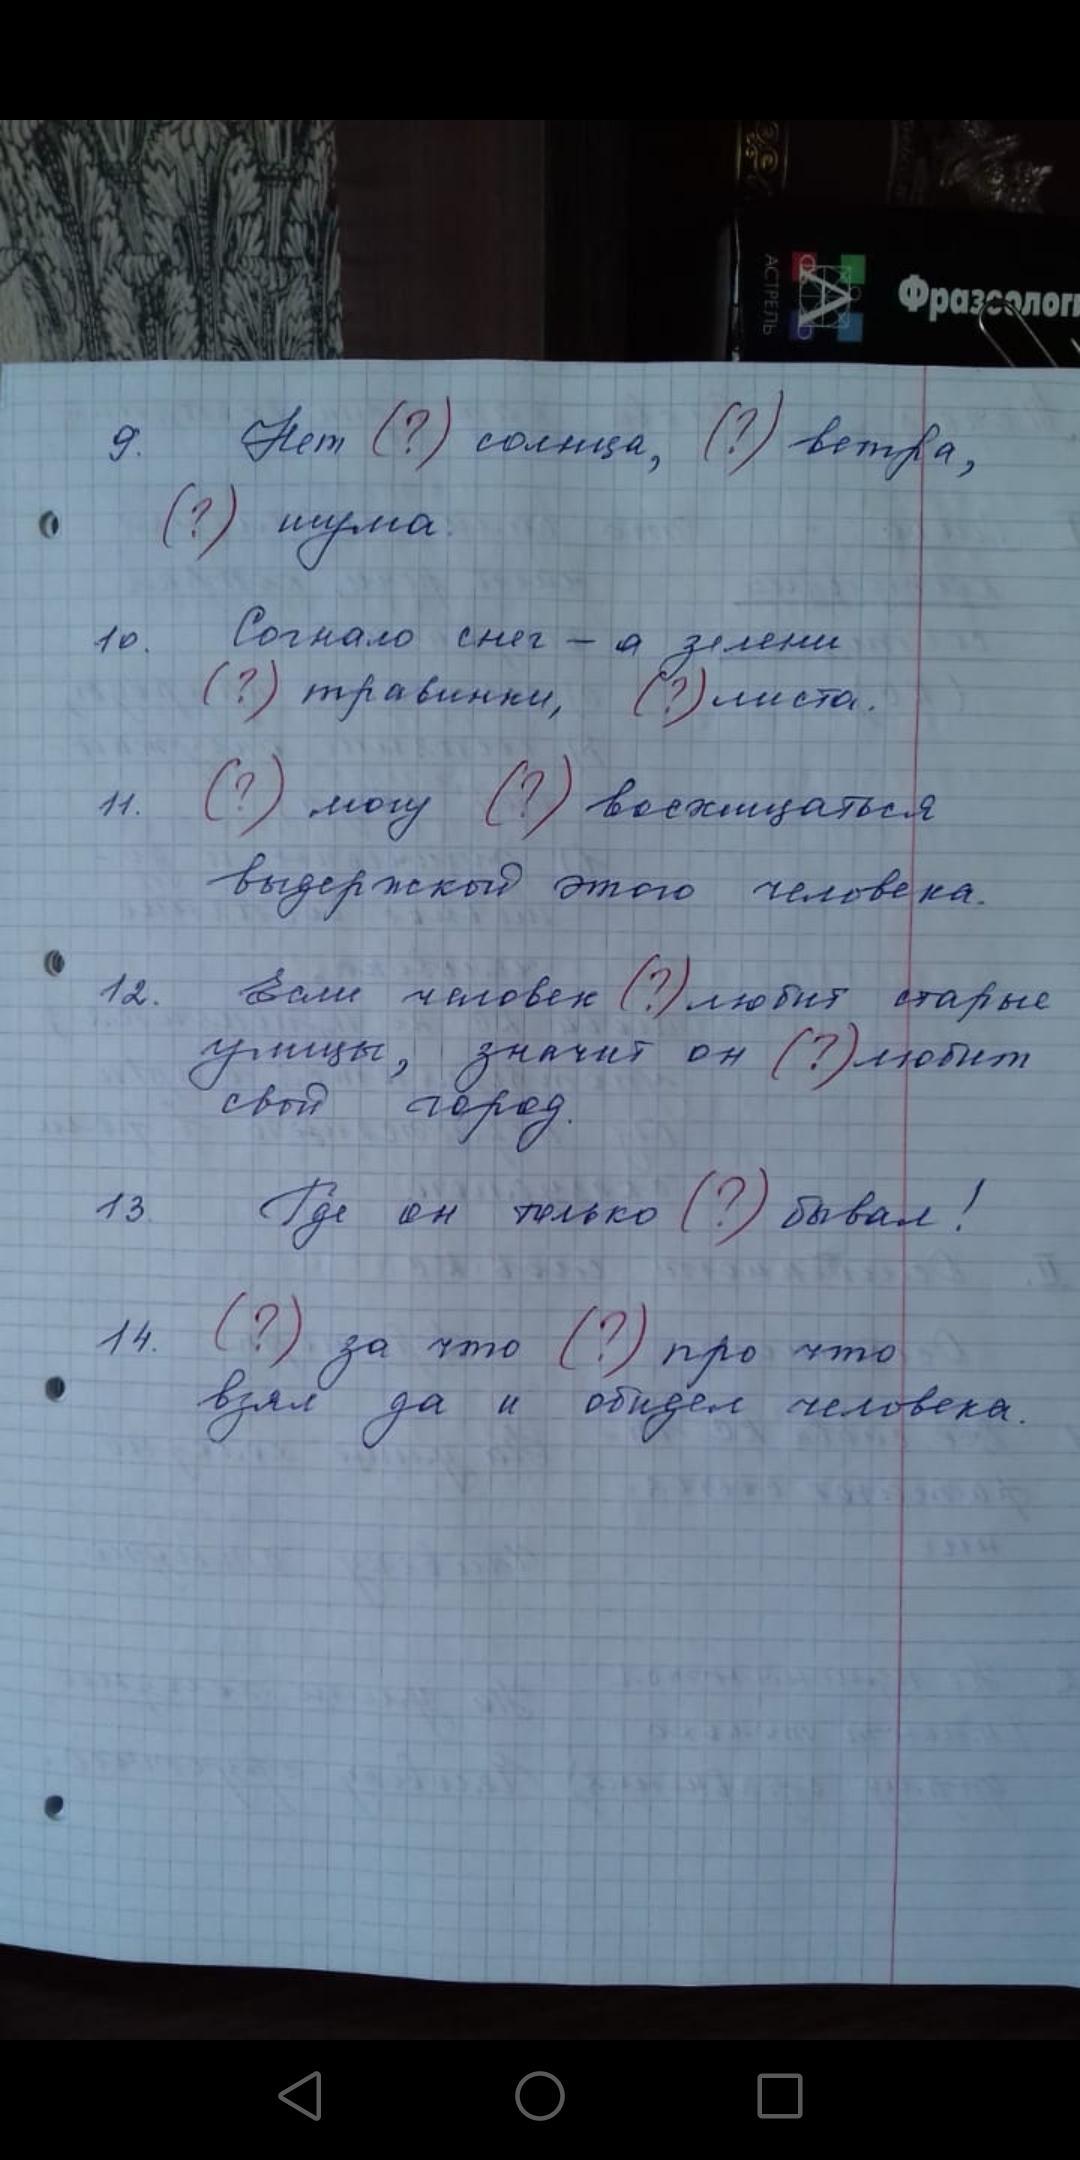 АСТРЕЛЬ
Фразеологи
9. Нет (?) солнца, (?) ветра,
(?) шума.
10. Согнало снег – а зелени
(?) травинки, (?) листа.
11. (?) могу (?) восхищаться
выдержкой этого человека.
12. Если человек (?) любит старые
улицы, значит он (?) любит
свой город.
13 Где он только (?) бывал!
14. (?) за что (?) про что
взял да и обидел человека.